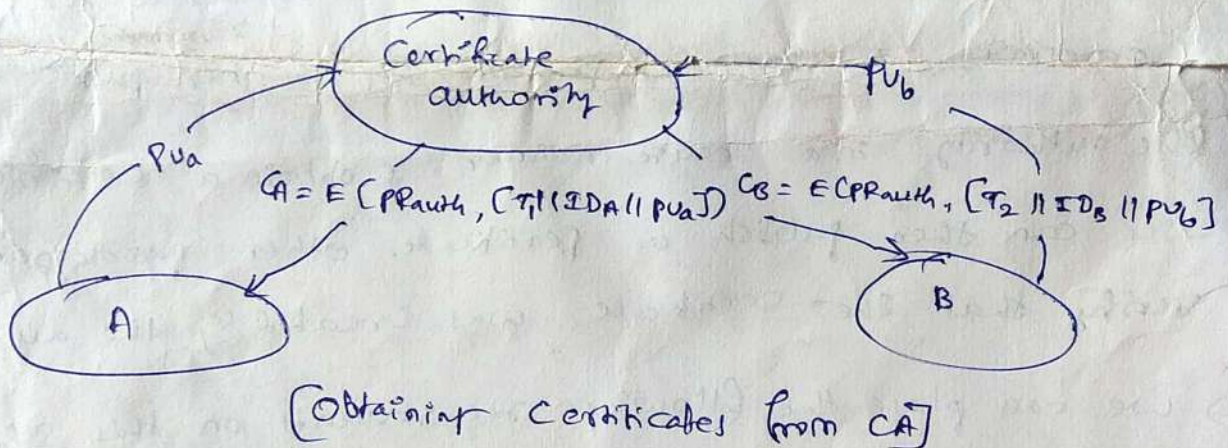 Certificate
authority
PUb
PUa
CA = E [PRauth, [T1||IDA||PUa]]
CB = E[PRauth, [T2||IDB||PUb]
A
B
[Obtaining Certificates from CA]